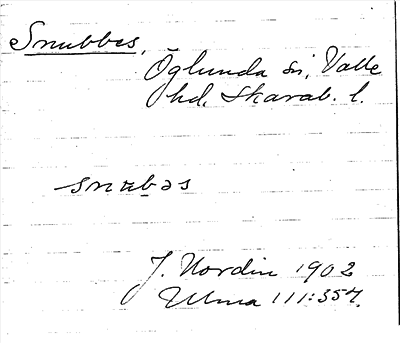 Snubbes,
Öglunda sn, Valle
hd, Skarab. l.
snub̠əs
J. Nordin 1902
Ulma 111:357.